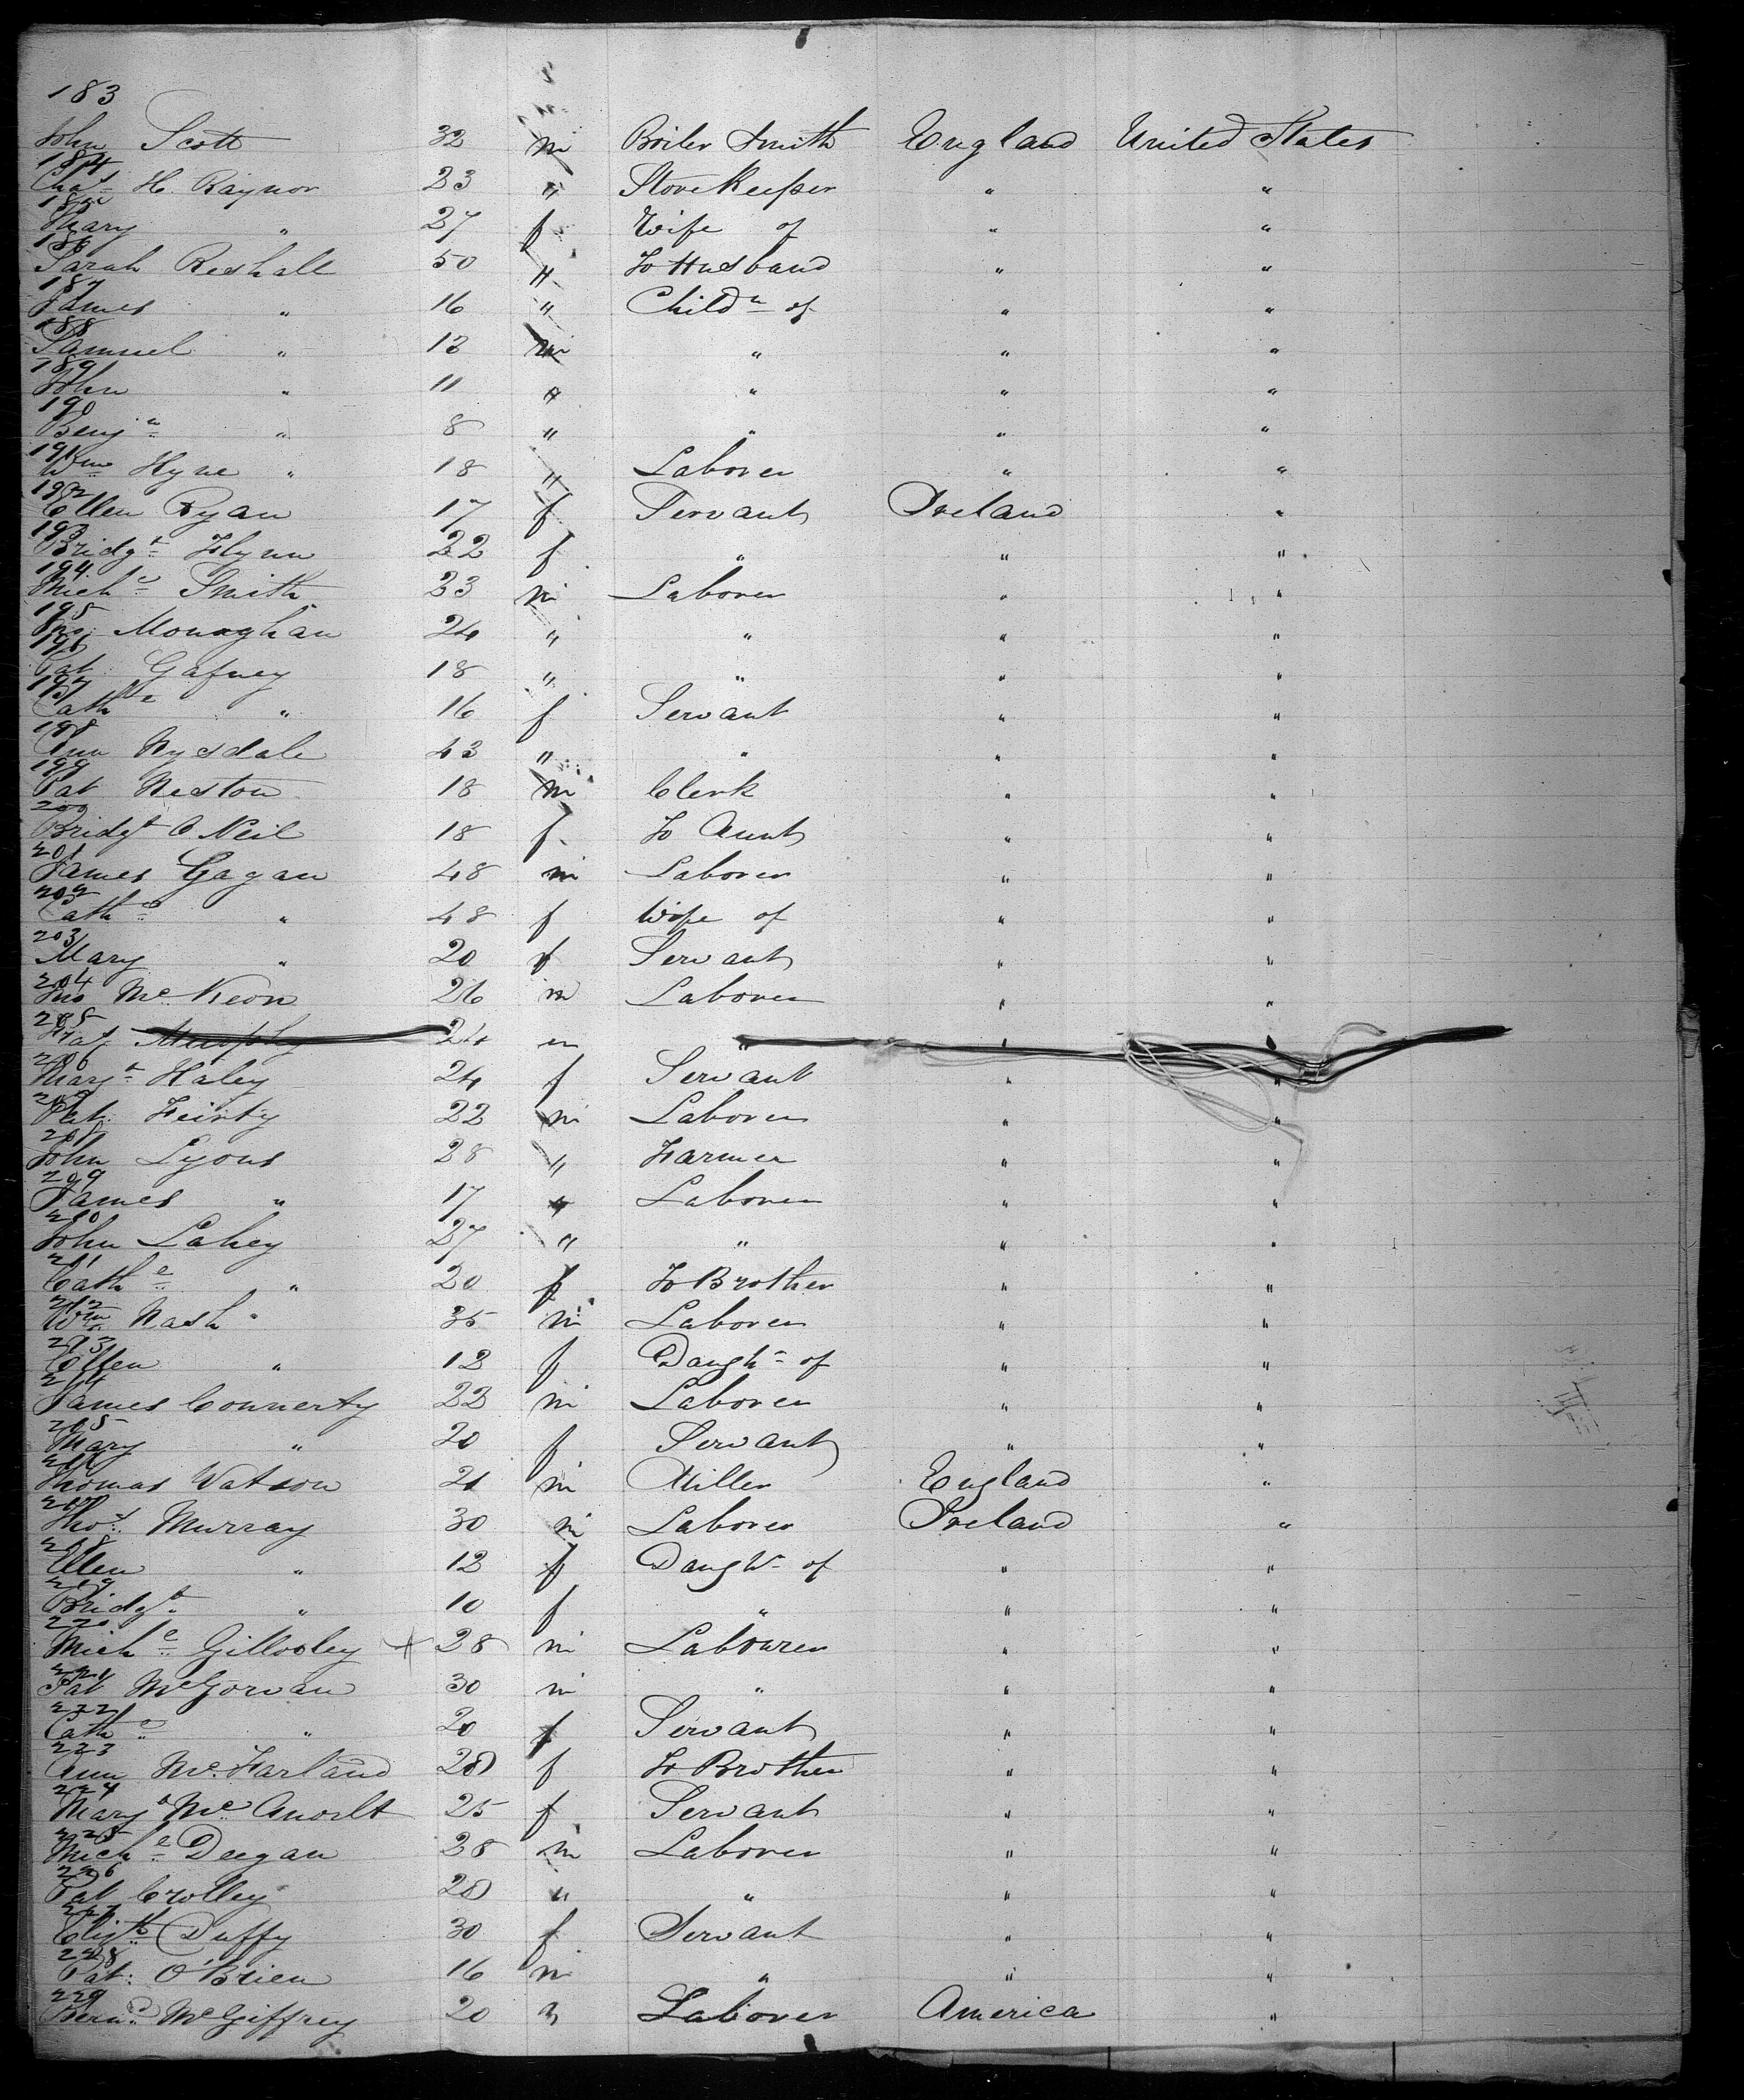 183
John Scott 32 m Boiler Smith England United States
184
Chas H. Raynor 23 " StoreKeeper " "
185
Mary " 27 f Wife of " "
186
Sarah Reshall 50 " To Husband " "
187
James " 16 " Childn of " "
188
Samuel " 13 m " " "
189
John " 11 " " " "
190
Benjn " 8 " " " "
191
Wm Hyne " 18 " Laborer " "
192
Ellen Ryan 17 f Servant Ireland "
193
Bridgt Flynn 22 f " " "
194
Michl Smith 23 m Laborer " "
195
Jno Monaghan 24 " " " "
196
Pat Gafney 18 " " " "
197
Cathne " 16 f Servant " "
198
Ann Nysdale 43 " " " "
199
Pat Neston 18 m Clerk " "
200
Bridgt O Neil 18 f To Aunt " "
201
James Gagan 48 m Laborer " "
202
Cathe " 48 f Wife of " "
203
Mary " 20 f Servant " "
204
Jno McKeon 26 m Laborer " "
205
Murphy 24 m " " "
206
Margt Haley 24 f Servant " "
207
Pat Feirty 22 m Laborer " "
208
John Lyons 28 " Farmer " "
209
James " 17 " Laborer " "
210
John Lahey 27 " " " "
211
Cathe " 20 f To Brother " "
212
Wm Nash 35 m Laborer " "
213
Ellen " 12 f Daughr of " "
214
James Connerty 22 m Laborer " "
205
Mary " 20 f Servant " "
216
Thomas Watson 21 m Miller England "
217
Thos Murray 30 m Laborer Ireland "
218
Ellen " 12 f Daughr of " "
219
Bridgt " 10 f " " "
220
Miche Gillooley + 28 m Labourer " "
221
Pat McGowan 30 m " " "
222
Cathe " 20 f Servant " "
223
Ann McFarland 20 f To Brother " "
224
Margt Mc 25 f Servant " "
225
Miche Deegan 28 m Laborer " "
226
Pat Crolley 20 " " " "
227
Elizth Duffy 30 f Servant " "
228
Pat: O'Brien 16 m " " "
229
Bernd McGiffrey 20 m Laborer America "